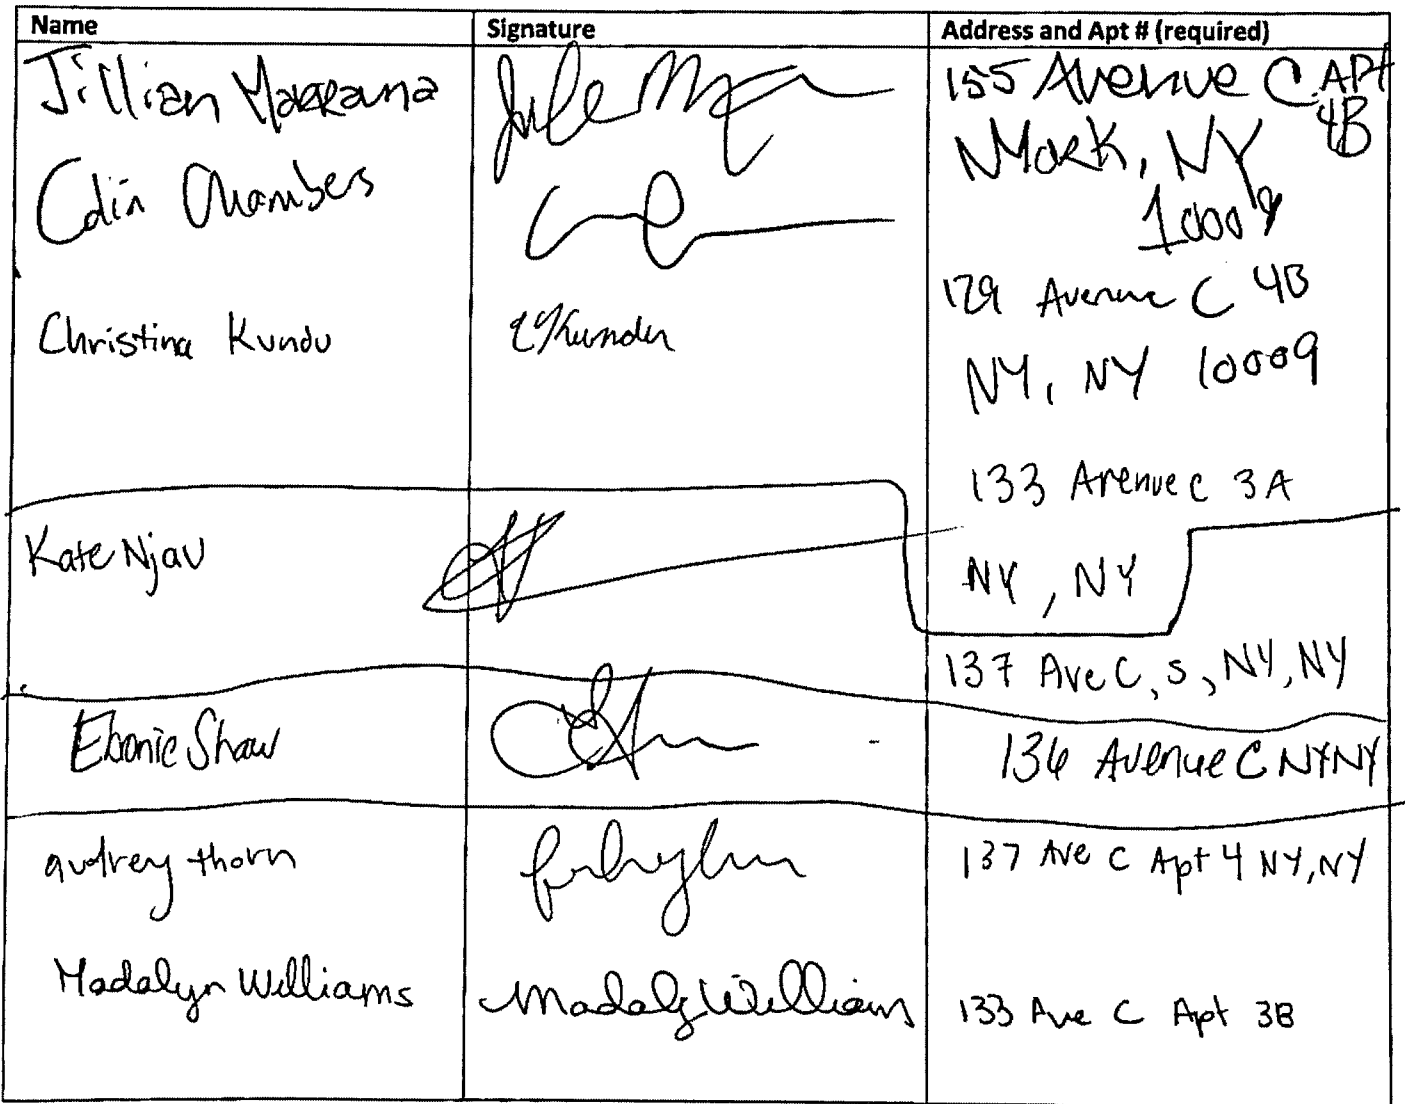 Name Signature Address and Apt # (required)
Jillian 155 Avenue C. APt
4B
NYork, NY
10009
Colin Chambers
129 Avenue C 4B
Christina Kundu
NY, NY 10009
133 Avenue C 3A
Kate Njau
NY, NY
137 Ave C, 5, NY, NY
Ebonie Shaw 136 Avenue C NYNY
audrey thorn 137 Ave C Apt 4 NY, NY
Madalyn Williams Madaly Williams 133 Ave C Apt 3B